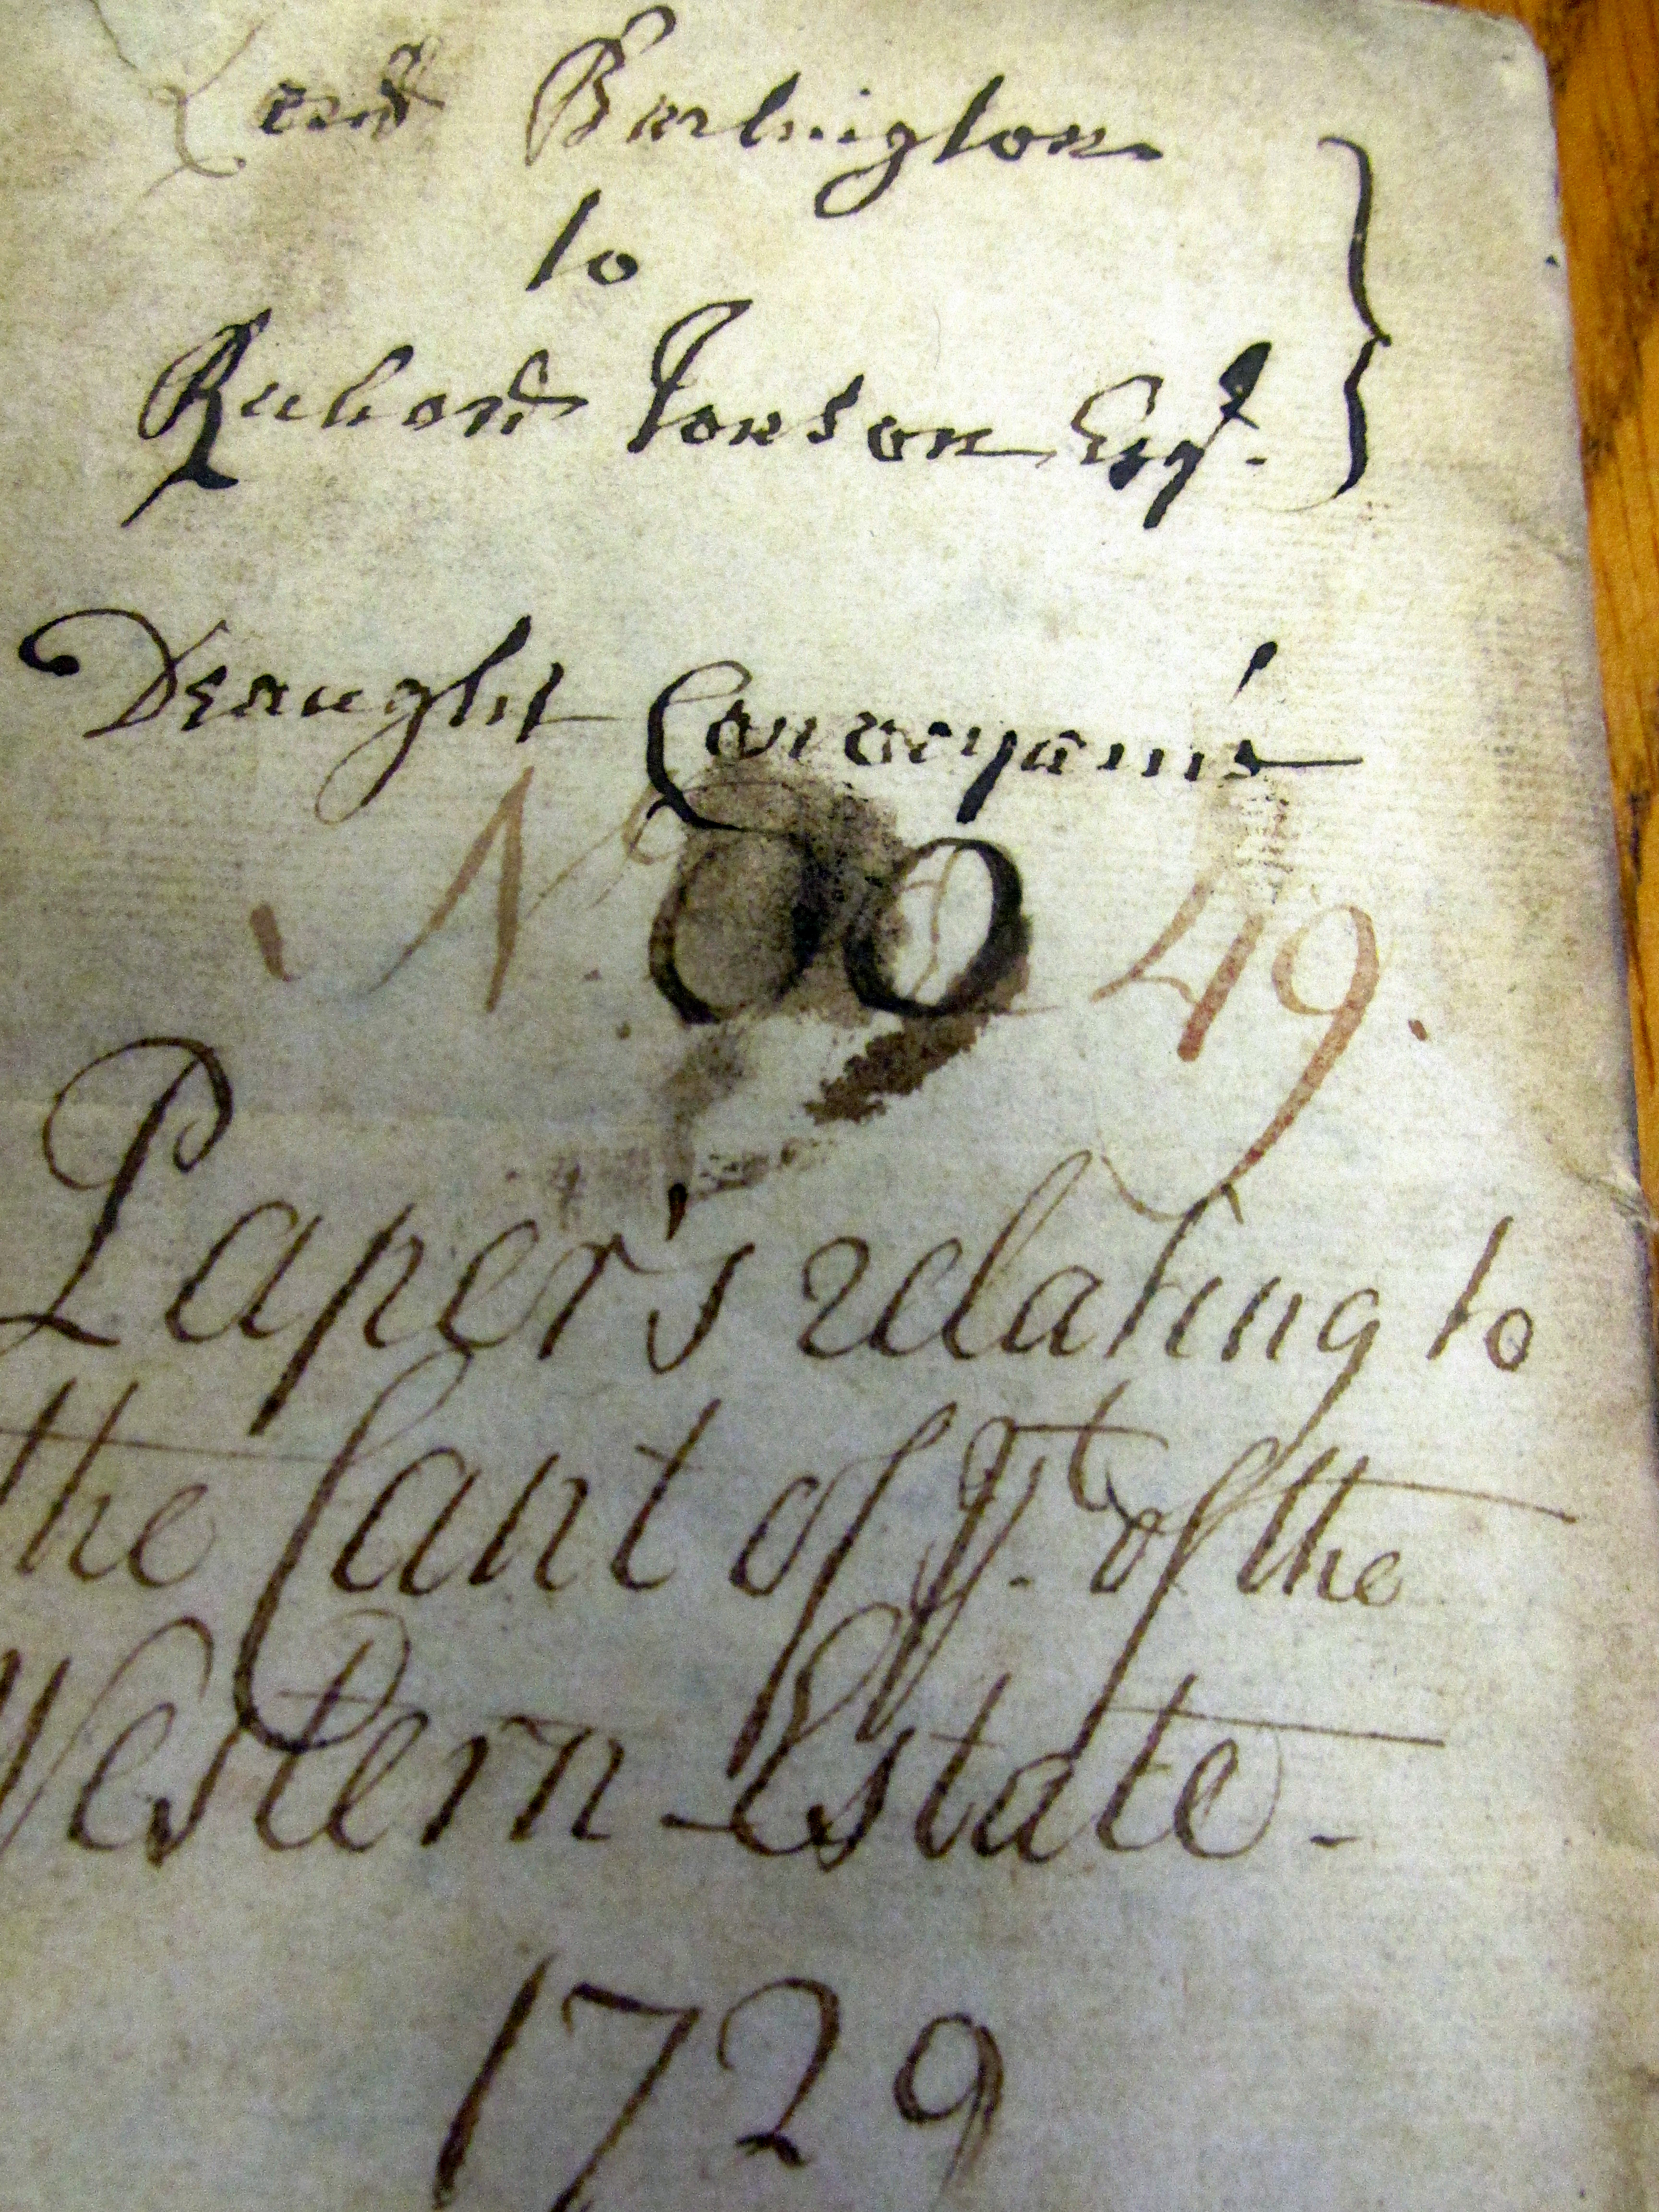 Lord Burlington
to
Richard Tonson Esqr.
Draught Conveyance
No. 49.
Paper's relating to
the Cant of pt. of the
Western Estate -
1729